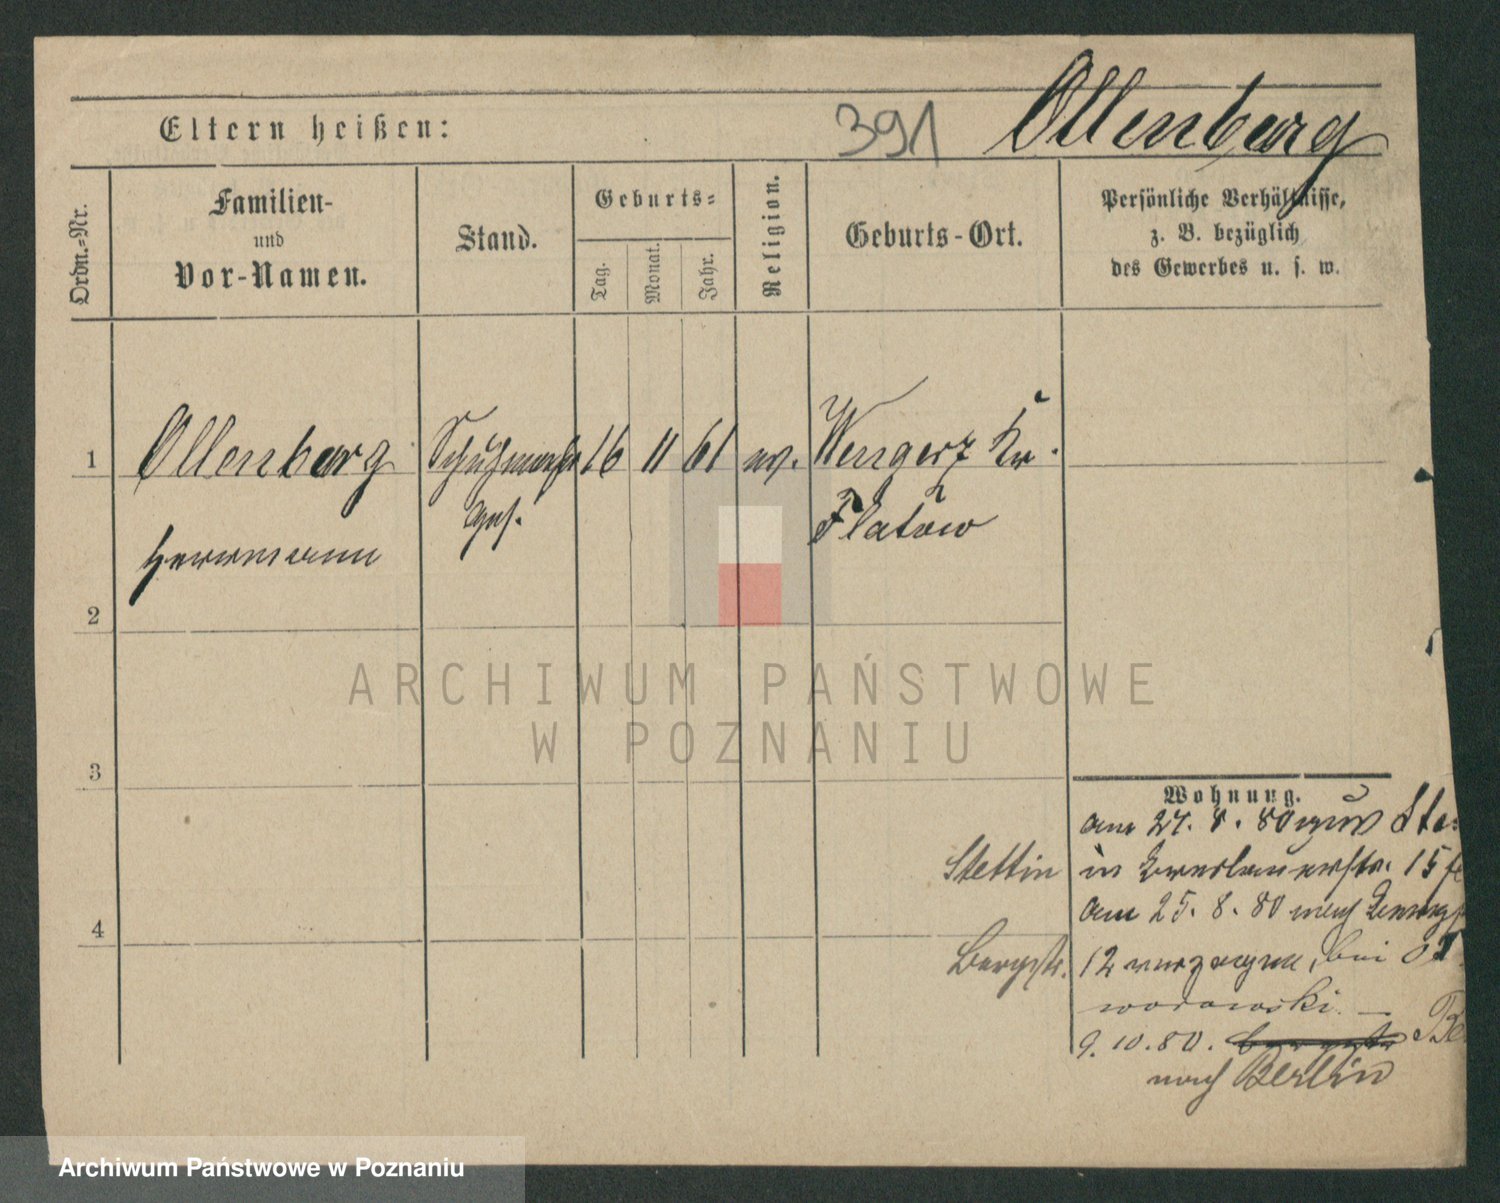 391 Ollenburg
Eltern heißen:
Ordn.=Nr.
Familien-
und
Vor-Namen.
Stand.
Geburts=
Tag.
Monat.
Jahr.
Religion.
Geburts-Ort.
Persönliche Verhältnisse,
z. B. bezüglich
des Gewerbes u. s. w.
1 Ollenburg 16 11 61 ev. Wengerz Kr.
Ges. Flatow
Herrmann
2
ARCHIWUM PAŃSTWOWE
W POZNANIU
3
Wohnung.
am 24. 8. 80 aus Ste=
Stettin in Breslauerstr. 15
am 25. 8. 80 nach
4
Bergstr. 12 verzogen, bei
9. 10. 80.
nach Berlin
Archiwum Państwowe w Poznaniu